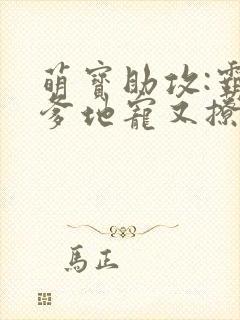 萌寶助攻:霸
爹地寵又撩
馬正